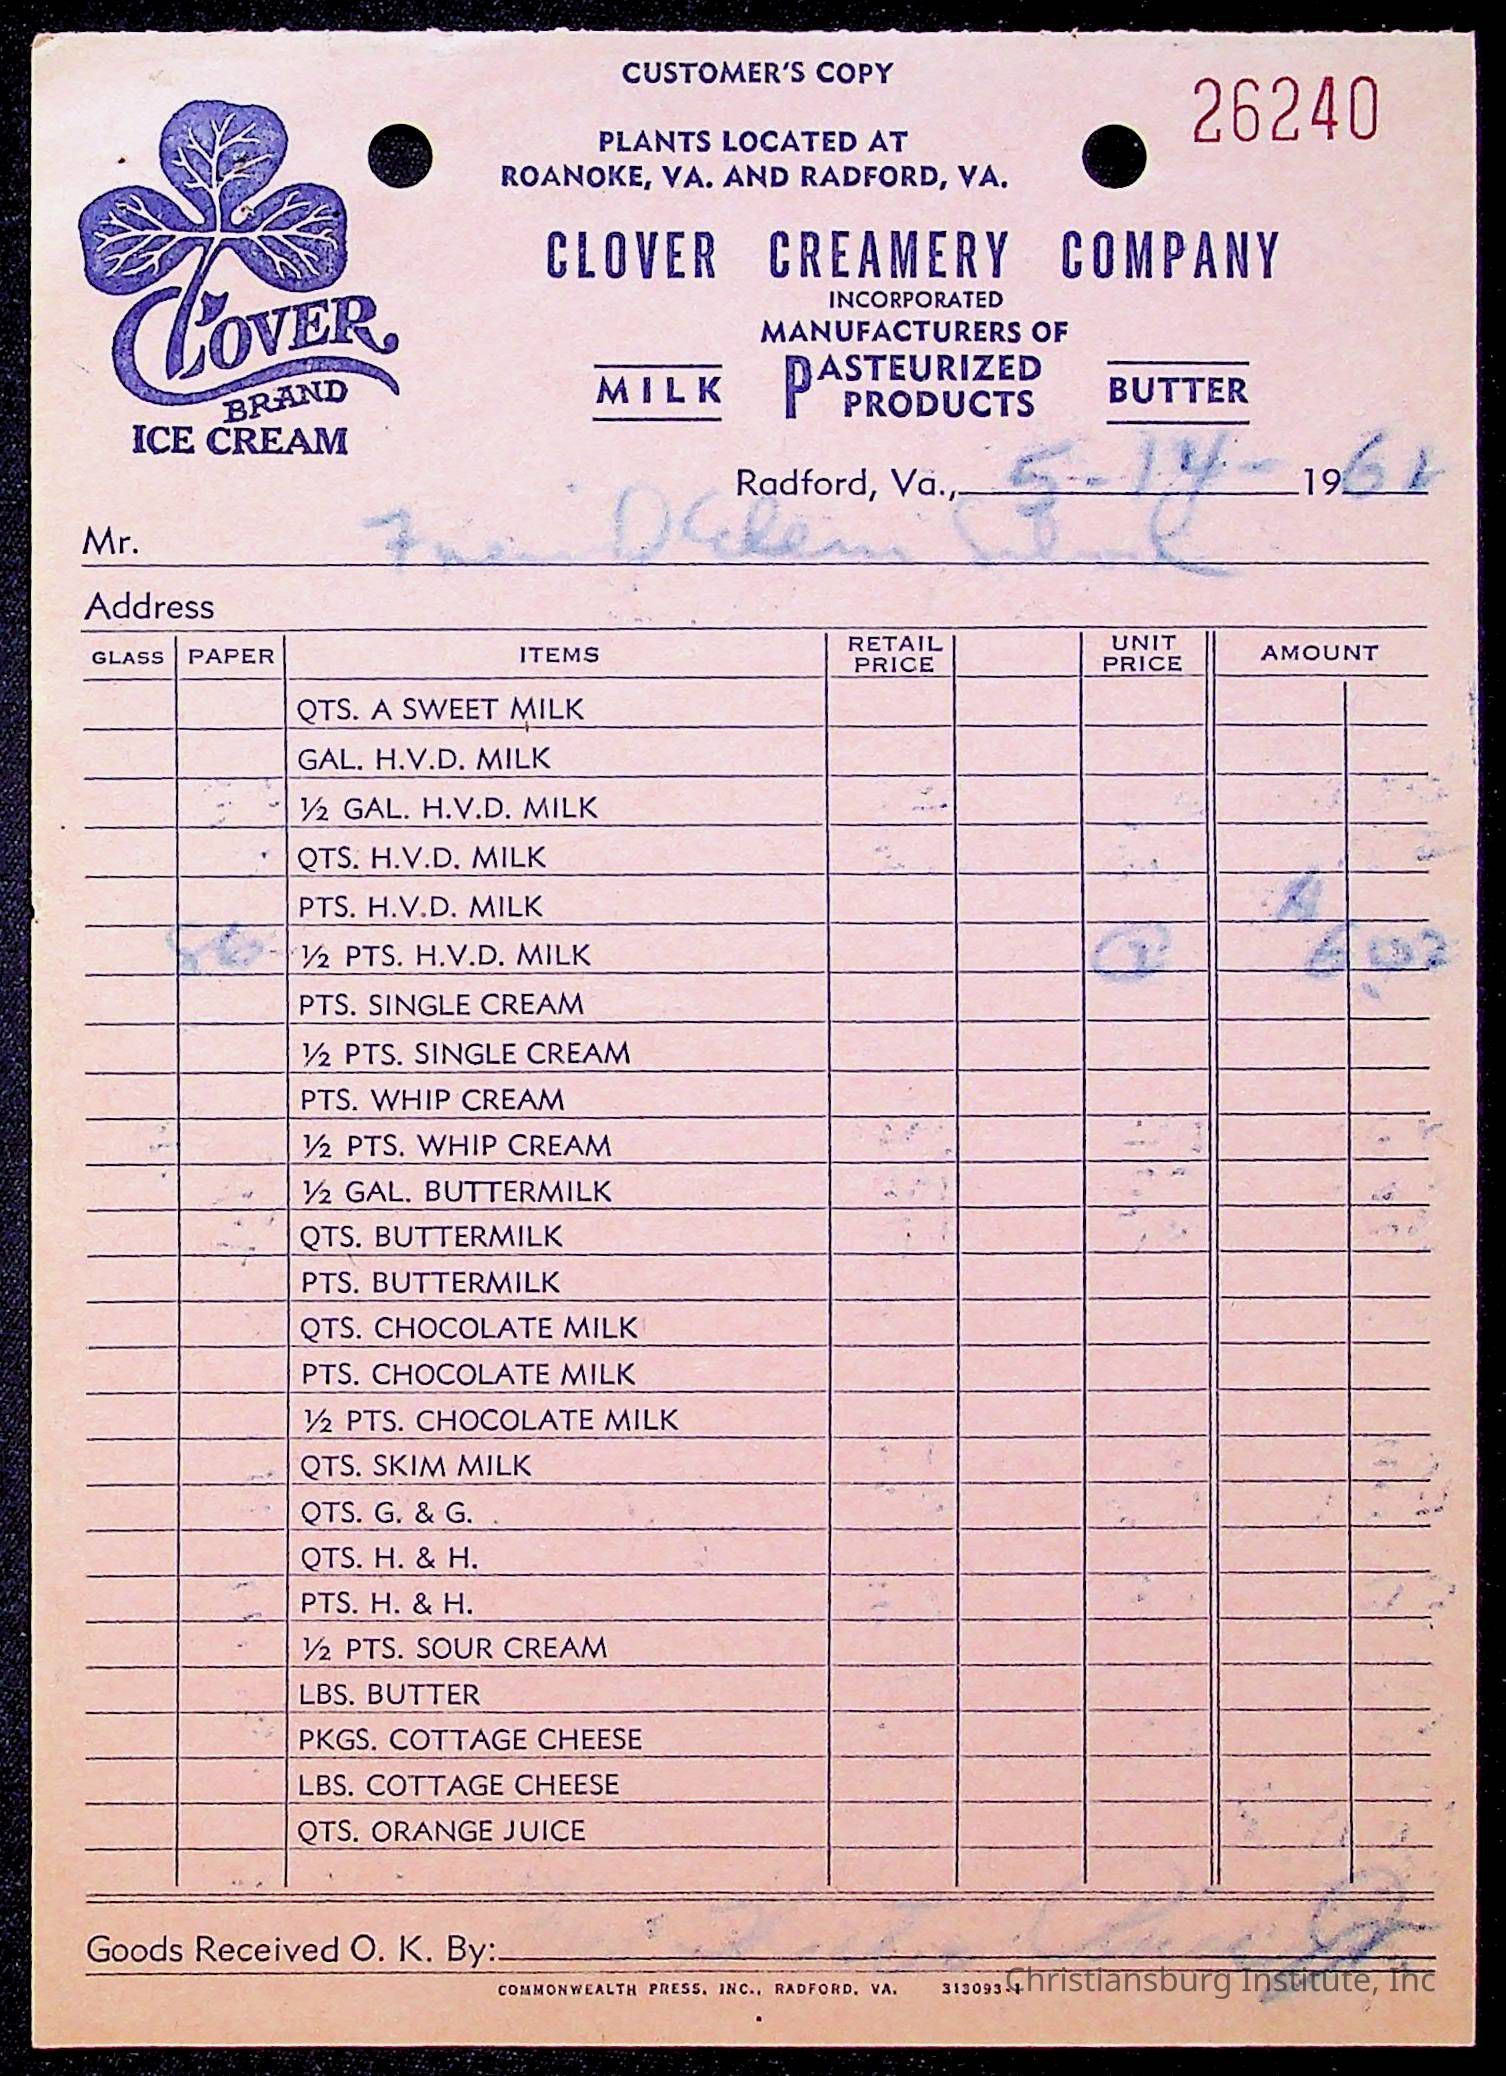 CUSTOMER'S COPY
26240
PLANTS LOCATED AT
ROANOKE, VA. AND RADFORD, VA.
CLOVER CREAMERY COMPANY
INCORPORATED
MANUFACTURERS OF
MILK PASTEURIZED PRODUCTS BUTTER
CLOVER
BRAND
ICE CREAM
Radford, Va., 5-14- 196
Mr.
Address
GLASS PAPER ITEMS RETAIL PRICE UNIT PRICE AMOUNT
QTS. A SWEET MILK
GAL. H.V.D. MILK
½ GAL. H.V.D. MILK
QTS. H.V.D. MILK
PTS. H.V.D. MILK
½ PTS. H.V.D. MILK
PTS. SINGLE CREAM
½ PTS. SINGLE CREAM
PTS. WHIP CREAM
½ PTS. WHIP CREAM
½ GAL. BUTTERMILK
QTS. BUTTERMILK
PTS. BUTTERMILK
QTS. CHOCOLATE MILK
PTS. CHOCOLATE MILK
½ PTS. CHOCOLATE MILK
QTS. SKIM MILK
QTS. G. & G.
QTS. H. & H.
PTS. H. & H.
½ PTS. SOUR CREAM
LBS. BUTTER
PKGS. COTTAGE CHEESE
LBS. COTTAGE CHEESE
QTS. ORANGE JUICE
Goods Received O. K. By:
COMMONWEALTH PRESS, INC., RADFORD, VA. 313093-1
Christiansburg Institute, Inc